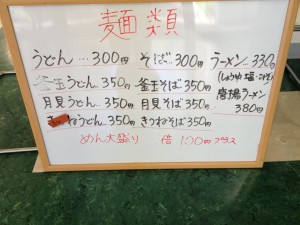 麺類
うどん…300円 そば…300円 ラーメン…330円
(しょうゆ・塩・みそ)
釜玉うどん…350円 釜玉そば 350円
唐揚ラーメン
380円
月見うどん…350円 月見そば 350円
きつねうどん…350円 きつねそば 350円
めん大盛り 倍 100円プラス